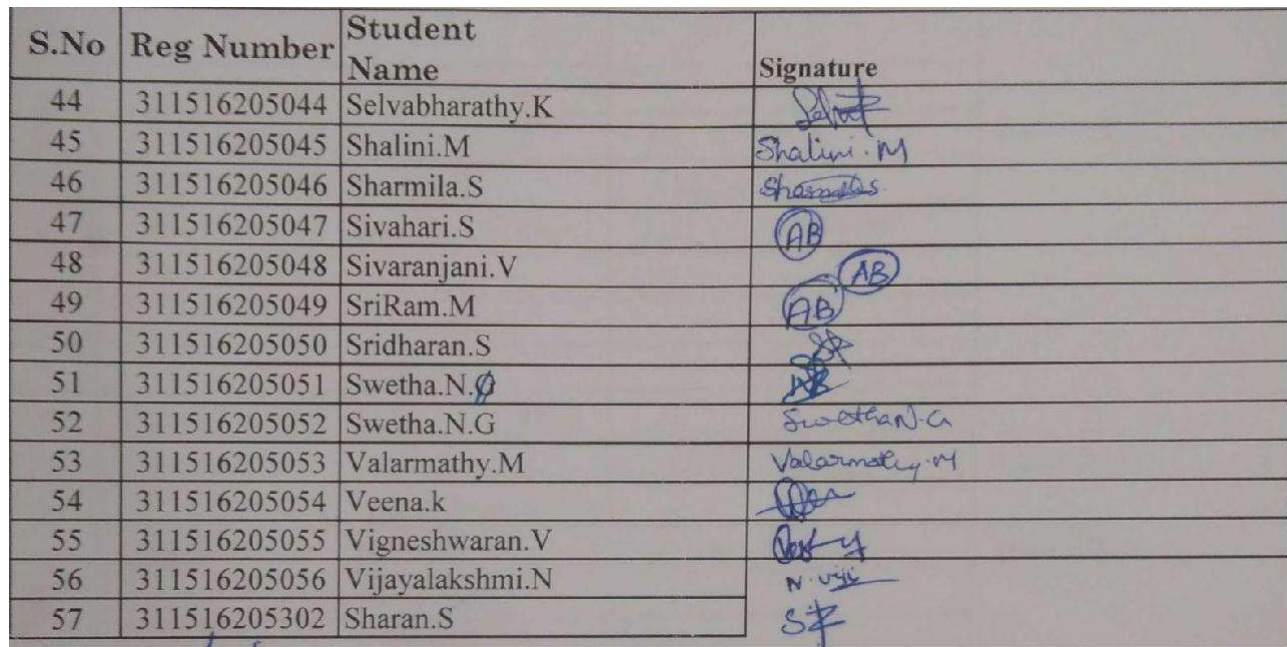 S.No Reg Number Student Name Signature
44 311516205044 Selvabharathy.K
45 311516205045 Shalini.M Shalini.M
46 311516205046 Sharmila.S
47 311516205047 Sivahari.S AB
48 311516205048 Sivaranjani.V AB
49 311516205049 SriRam.M AB
50 311516205050 Sridharan.S
51 311516205051 Swetha.N.
52 311516205052 Swetha.N.G Swetha N.G
53 311516205053 Valarmathy.M Valarmathy.M
54 311516205054 Veena.k
55 311516205055 Vigneshwaran.V
56 311516205056 Vijayalakshmi.N N.Viji
57 311516205302 Sharan.S